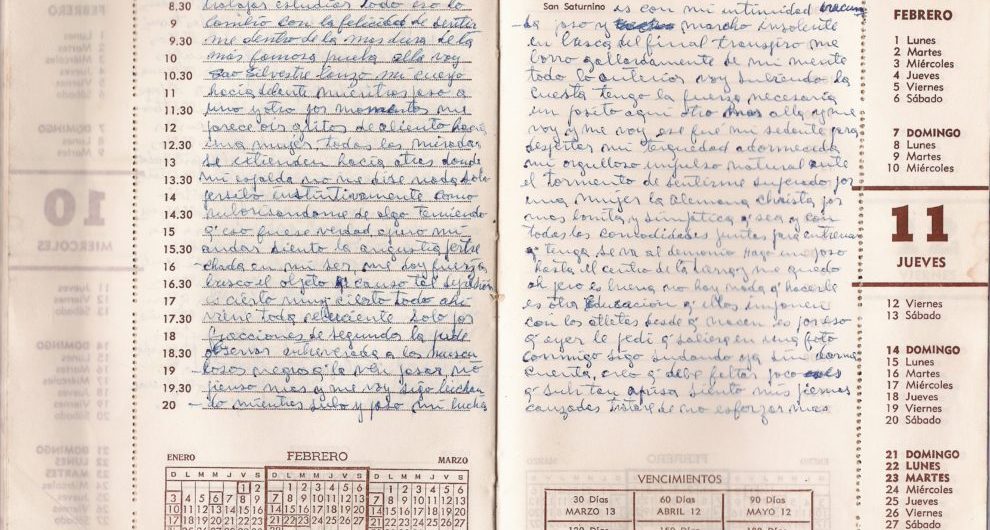 8.30 trabajar estudiar todo eso lo
9 cambio con la felicidad de sentir
9.30 me dentro de la mas dura de la
10 más famosa prueba alla voy
10.30 Sao Silvestre lanzo mi cuerpo
11 hacia delante mientras paso a
11.30 uno y otro por momentos me
12 parece oir gritos de aliento hacia
12.30 una mujer todas las miradas
13 se extienden hacia atras donde
13.30 mi espalda no me dice nada solo
14 instintivamente como
14.30 de algo temiendo
15 q' eso fuese verdad apuro mi
15.30 andar siento la angustia
16 chada en mi ser, me doy fuerza
16.30 busco el objeto q' causo tal
17 es cierto muy cierto todo ahi
17.30 viene toda solo por
18 fracciones de segundo la pude
18.30 observar a los
19 negros q' la ven pasar no
19.30 pienso mas y me voy sigo luchan
20 do mientras subo y paso mi lucha
ENERO FEBRERO MARZO
D L M M J V S
D L M M J V S
D L M M J V S
San Saturnino es con mi intimidad
la paso y marcho insolente
en busca del final transpiro me
borro gallardamente de mi mente
todo lo anterior voy subiendo la
cuesta tengo la fuerza necesaria
un pasito aqui otro mas alla y me
voy y me voy, ese fué mi sedante para
despertar mi terquedad adormecida
mi orgulloso impulso natural ante
el tormento de sentirme superado por
una mujer la alemana christa por
mas bonita y simpática q' sea y con
todas las comodidades juntas para entrenar
q' tenga, se va al demonio hago un pozo
hasta el centro de la tierra y me quedo
ah pero es buena no hay nada q' hacerle
es otra educación q' ellos imponen
con los atletas desde q' nacen es por eso
q' ayer le pedi q' saliera en una foto
conmigo sigo sudando ya sin darme
cuenta, creo q' debe faltar poco
q' subi tan aprisa siento mis piernas
cansadas tratare de no esforzar mas
VENCIMIENTOS
30 Días 60 Días 90 Días
MARZO 13 ABRIL 12 MAYO 12
FEBRERO
1 Lunes
2 Martes
3 Miércoles
4 Jueves
5 Viernes
6 Sábado
7 DOMINGO
8 Lunes
9 Martes
10 Miércoles
11
JUEVES
12 Viernes
13 Sábado
14 DOMINGO
15 Lunes
16 Martes
17 Miércoles
18 Jueves
19 Viernes
20 Sábado
21 DOMINGO
22 LUNES
23 MARTES
24 Miércoles
25 Jueves
26 Viernes
27 Sábado